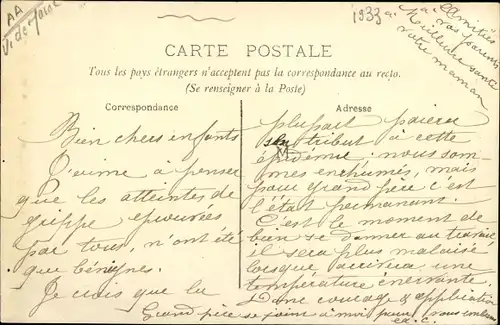 AA
V. de
1933
Amitiés
à vos parents
Meilleure santé
votre maman
CARTE POSTALE
Tous les pays étrangers n'acceptent pas la correspondance au recto.
(Se renseigner à la Poste)
Correspondance
Bien chers enfants
J'aime à penser
que les atteintes de
grippe éprouvées
par tous, n'ont été
que bénignes.
Je crois que la
Adresse
plupart paiera
son tribut à cette
épidémie; nous som-
mes enrhumés, mais
pour grand père c'est
l'état permanent.
C'est le moment de
bien se donner au travail
il sera plus malaisé
lorsque arrivera une
température énervante.
Donc courage & application
Grand père se joint à moi pour vous embrasser